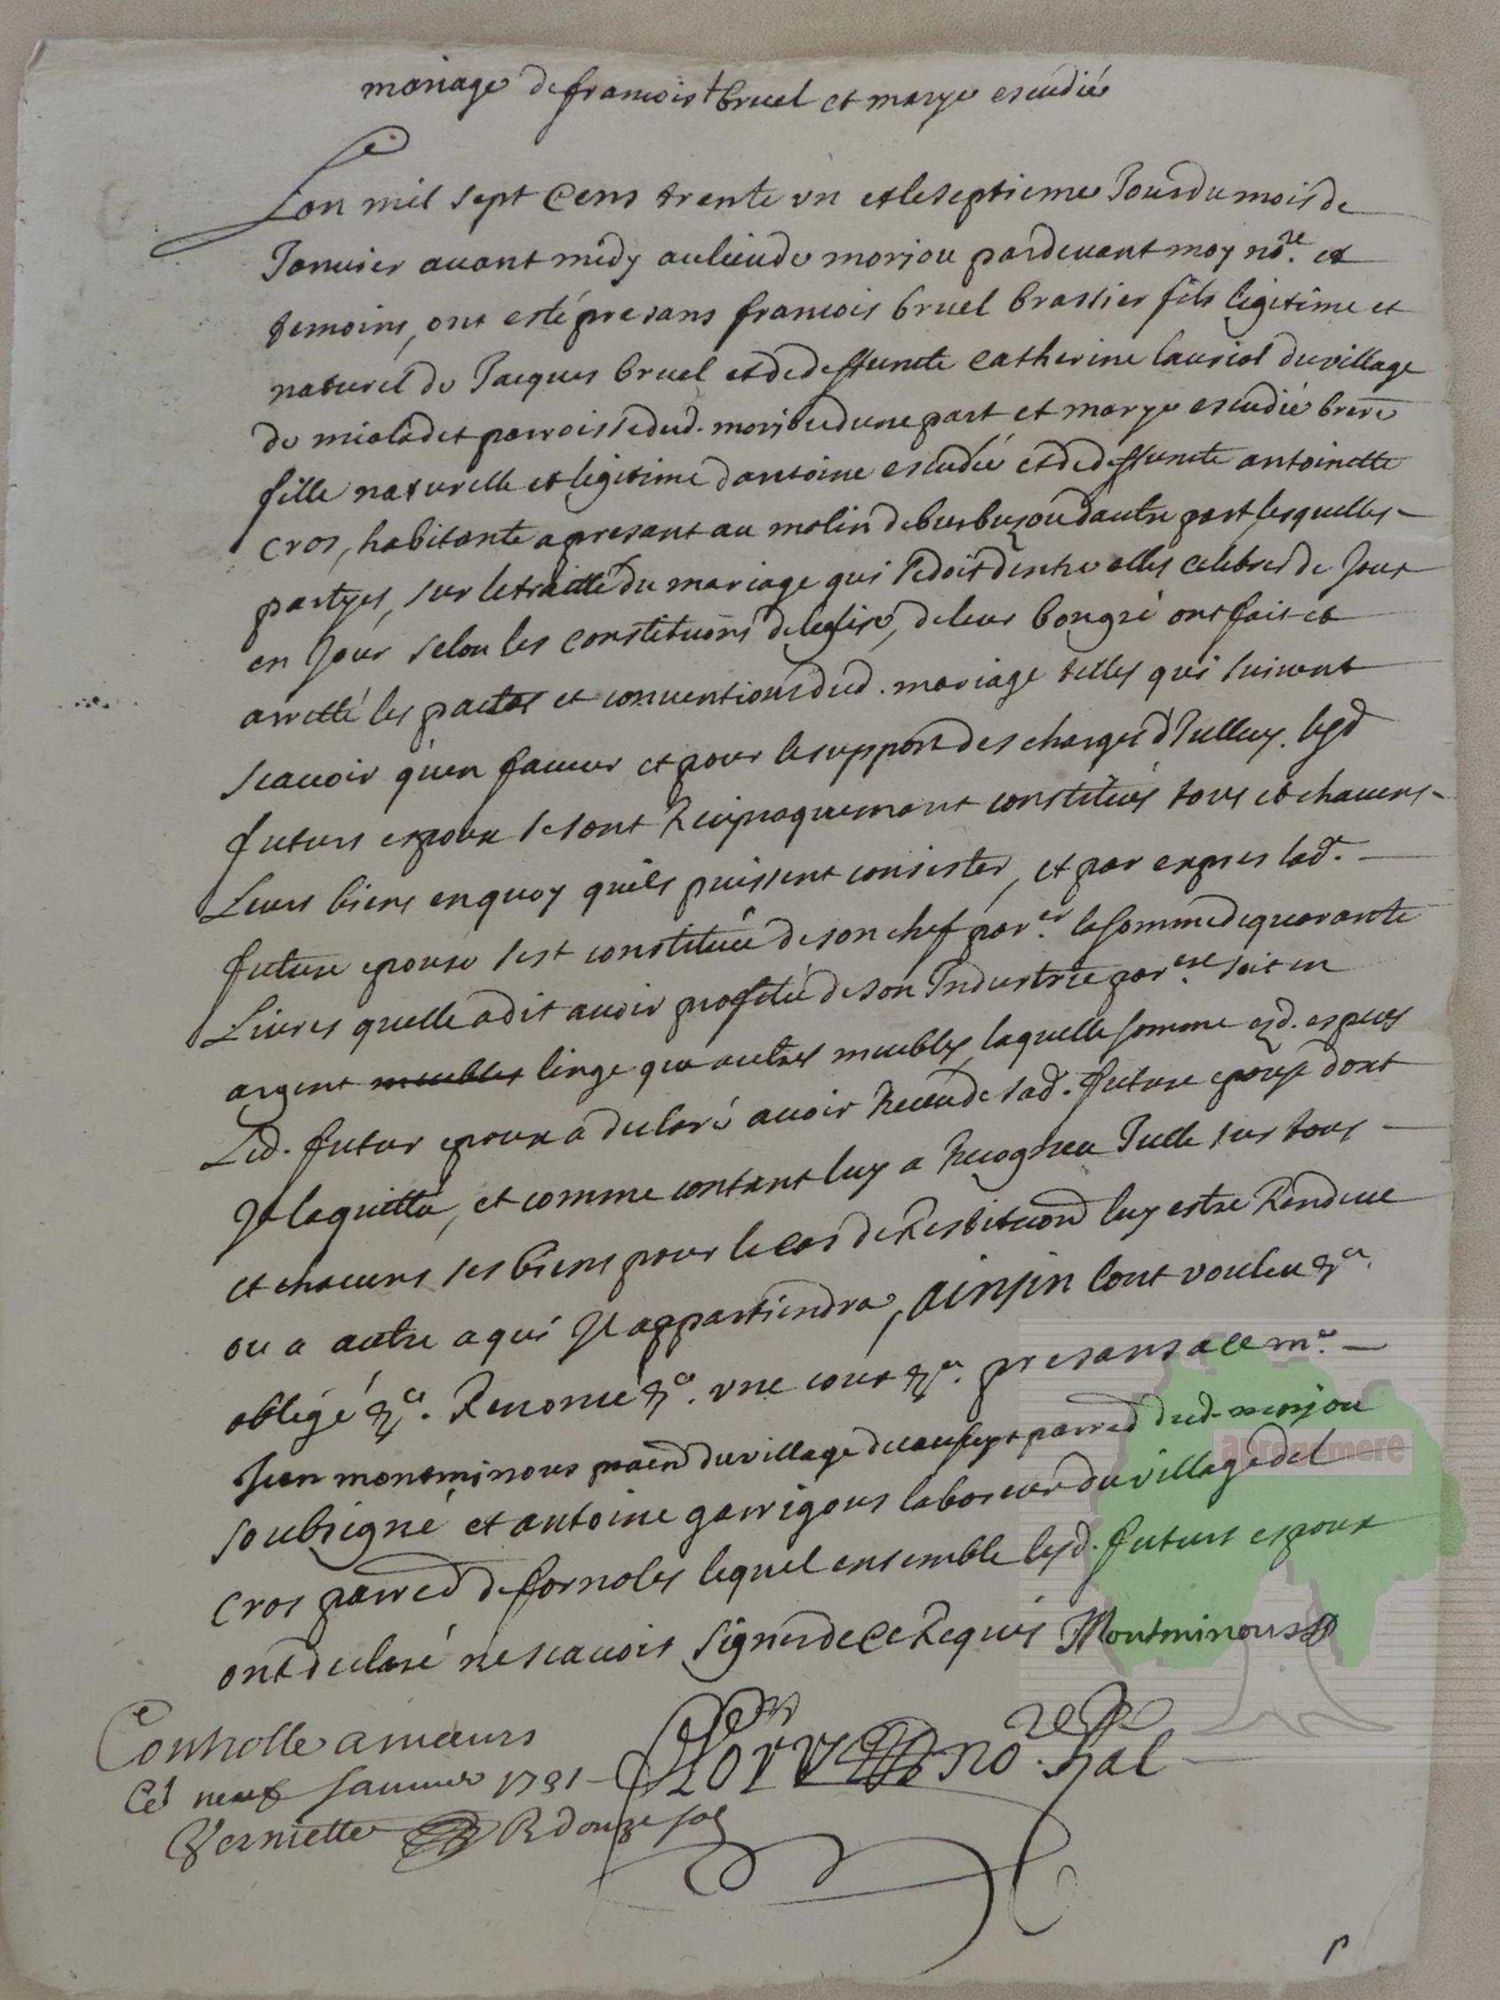 mariage de francois bruel et marye escudié
Lan mil sept Cens trente un et le septieme Jour du mois de
Janvier avant midy au lieu de morjou pardevant moy nore. et
temoins, ont esté presans francois bruel brassier fils legitime et
naturel de Jacques bruel et de deffuncte Catherine lauriol du village
de mialadet parroisse dud. morjou dune part et marye escudié
fille naturelle et legitime dantoine escudié et de deffuncte antoinette
cros, habitante apresant au molin de dautre part lesquelles
partyes, sur le traitté du mariage qui sedoit dentre elles celebrer de Jour
en Jour selon les constituons deleglise, de leur bongré ont fait et
arretté les pactes et conventions dud. mariage telles qui suivent
scavoir quen faveur et pour le support des charges dIcelluy. lesd
futurs epoux se sont Reciproquemant constitués tous et chacuns
Leurs biens enquoy quils puissent consister, et par expres lad.
future epouse sest constituée de son chef par.er la somme de quarante
Livres quelle a dit avoir profitée de son Industrie par.ere soit en
argent meubles linge que autres meubles, laquelle somme esd. especes
Led. futur epoux a declaré avoir Receu de lad. future epouse dont
Il laquitté, et comme contant luy a Recogneu Icelle sur tous
et chacuns ses biens pour le cas de Restituon luy estre Rendue
ou a autre a qui Il appartiendra, ainsin lont vouleu &a.
obligé &a. Renoncé &a. une court &a. presans a ce me.
Jean montminous du village de parred dud. morjou
soubsigné et antoine garrigous laboreur du village del
cros parred de fornoles lequel ensemble lesd. futurs espoux
ont declaré ne scavoir signer de Ce Requis Montminous
apronemere
Controlle a maurs
Ce neuf Janvier 1731
Verniette R douze sols
nore. Ral